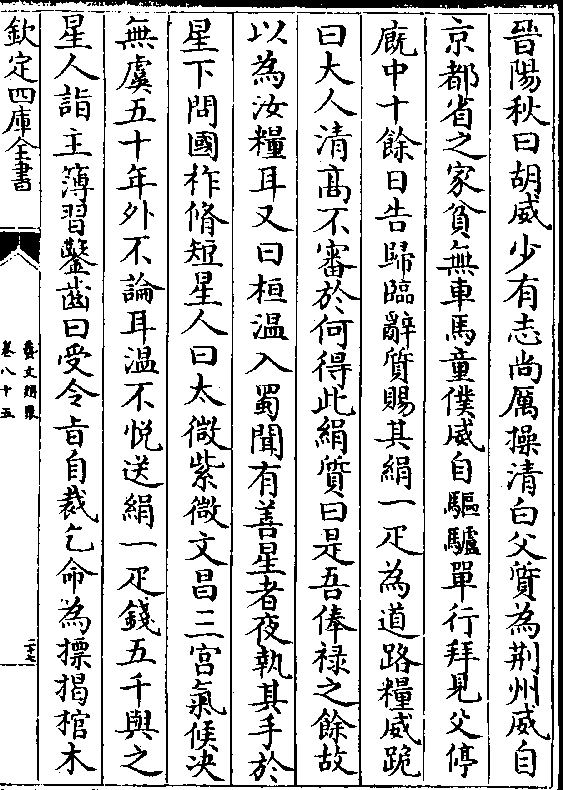 晉陽秋曰胡威少有志尚厲操清白父質為荆州威自
京都省之家貧無車馬童僕威自驅驢單行拜見父停
廐中十餘日告歸臨辭質賜其絹一疋為道路糧威跪
曰大人清髙不審於何得此絹質曰是吾俸禄之餘故
以為汝糧耳又曰桓温入蜀聞有善星者夜執其手於
星下問國柞脩短星人曰太微紫微文昌三宫氣候决
無虞五十年外不論耳温不悦送絹一疋錢五千與之
星人詣主簿習鑿齒曰受令㫖自裁乞命為摽揭棺木
欽定四庫全書
藝文類聚
卷八十五